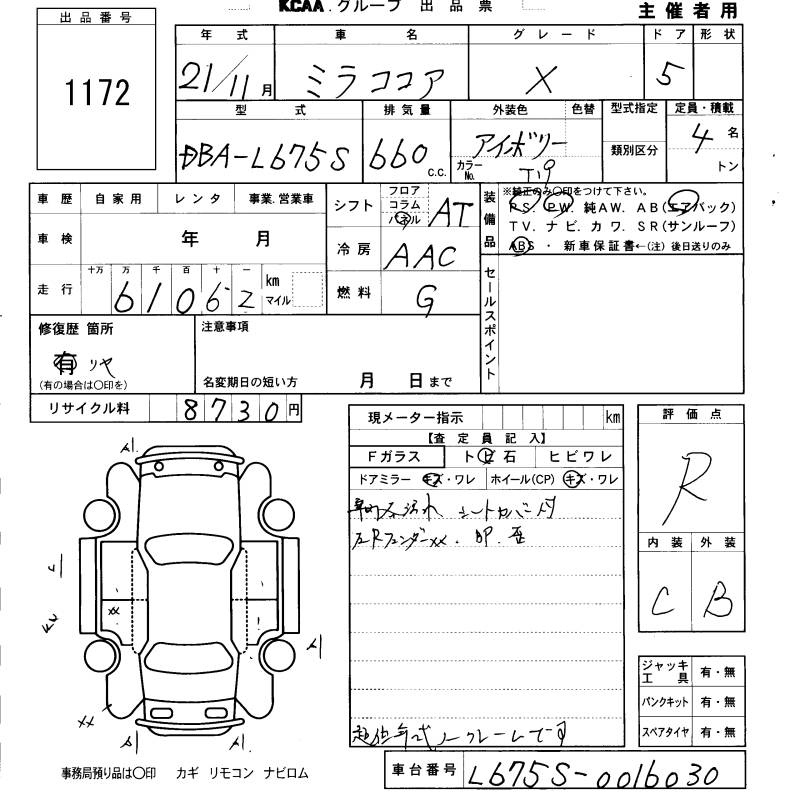 KCAA.グループ 出品票
主催者用
出品番号
1172
年式 車名 グレード ドア 形状
21/11月 ミラココア X 5
型式 排気量 外装色 色替 型式指定 定員・積載
DBA-L675S 660 c.c. アイボリー 類別区分 4名
カラーNo. T19 トン
車歴 自家用 レンタ 事業.営業車
車検 年 月
走行 十万 万 千 百 十 一 km マイル
61062
シフト フロア コラム パネル AT
冷房 AAC
燃料 G
装備品 ※純正のみ○印をつけて下さい。
P.S. P.W. 純AW. AB(エアバック)
TV. ナビ. カワ. SR(サンルーフ)
ABS ・ 新車保証書←(注) 後日送りのみ
セールスポイント
修復歴 箇所
有 リヤ
(有の場合は○印を)
注意事項
名変期日の短い方 月 日まで
リサイクル料 8730円
現メーター指示 km
【査定員記入】
Fガラス ト ビ 石 ヒビワレ
ドアミラー キズ・ワレ ホイール(CP) キズ・ワレ
車内汚れ シートカバー付
左Rフェンダーxx.
ノークレームです
評価点
R
内装 外装
C B
ジャッキ工具 有・無
パンクキット 有・無
スペアタイヤ 有・無
xx
xx
事務局預り品は○印 カギ リモコン ナビロム
車台番号 L675S-0016030